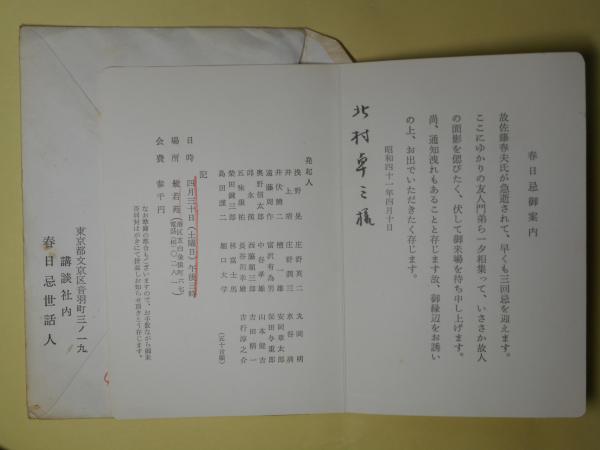 春日忌御案内
故佐藤春夫氏が急逝されて、早くも三回忌を迎えます。
ここにゆかりの友人門弟ら一夕相集って、いささか故人
の面影を偲びたく、伏して御来場を待ち申し上げます。
尚、通知洩れもあることと存じます故、御縁辺をお誘い
の上、お出でいただきたく存じます。
昭和四十一年四月十日
北村卓三様
発起人
浅野晃 庄野英二 丸岡明
井上靖 庄野潤三 水谷清
井伏鱒二 檀一雄 安岡章太郎
遠藤周作 富沢有為男 保田与重郎
奥野信太郎 中谷孝雄 山本健吉
邱永漢 西脇順三郎 吉田精一
五味康祐 長谷川幸雄 吉行淳之介
柴田錬三郎 林富士馬
島田謹二 堀口大学 (五十音順)
記
日時 四月三十日(土曜日)午後三時
場所 般若苑
会費 参千円
なお準備の都合もございますので、お手数ながら御来
否同封はがきにて折返しお知らせ頂きとう存じます。
東京都文京区音羽町三ノ一九
講談社内
春日忌世話人